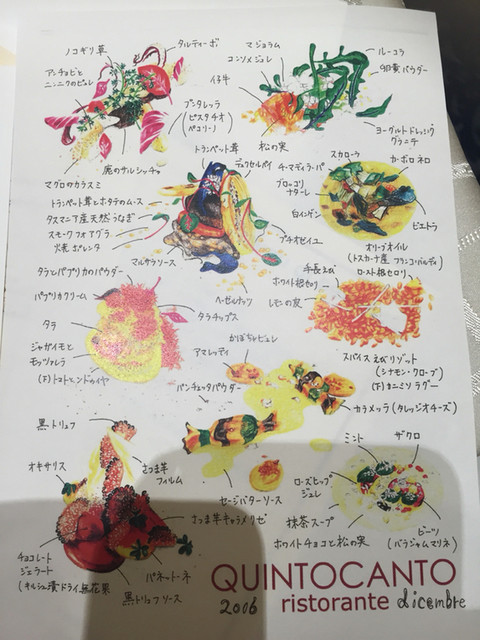 ノコギリ草
タルティーボ
アンチョビと
ニンニクのピュレ
ブッタレッラ
(ピスタチオ
ペコリーノ)
鹿のサルシッチャ
マグロのカラスミ
マジョラム
コンソメジュレ
仔牛
松の実
ルーコラ
卵黄パウダー
ヨーグルトドレッシング
グラニテ
トランペット茸
デュクセルパイ
トランペット茸とホタテのムース
タスマニア産天然うなぎ
スモークフォアグラ
焼ポレンタ
マルサラソース
プチオゼイユ
ヘーゼルナッツ
スカローラ
カーボロネロ
チーマディラーパ
ブロッコリ
ナターレ
白インゲン
ビエトラ
オリーブオイル
(トスカーナ産 フランコバルディ)
タラとパプリカのパウダー
パプリカクリーム
タラ
ジャガイモと
モッツァレラ
(下)トマトとンドゥイヤ
タラチップス
手長えび
ホワイト根セロリ
レモンの実
ロースト根セロリ
スパイスえびリゾット
(シナモン・クローブ)
(下)カニミソラグー
かぼちゃピュレ
アマレッティ
パンチェッタパウダー
カラメッラ(タレッジオチーズ)
セージバターソース
黒トリュフ
オキサリス
さつま芋
フィルム
さつま芋キャラメリゼ
チョコレート
ジェラート
パネトーネ
黒トリュフソース
ミント
ザクロ
ローズヒップ
ジュレ
抹茶スープ
ホワイトチョコと松の実
ビーツ
(バラジャムマリネ)
QUINTOCANTO
2006 ristorante dicembre